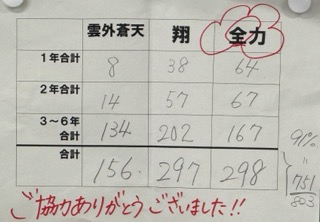 雲外蒼天 翔 全力
1年合計 8 38 64
2年合計 14 57 67
3～6年合計 134 202 167
合計 156. 297 298
91%
=
751
803
ご協力ありがとうございました!!